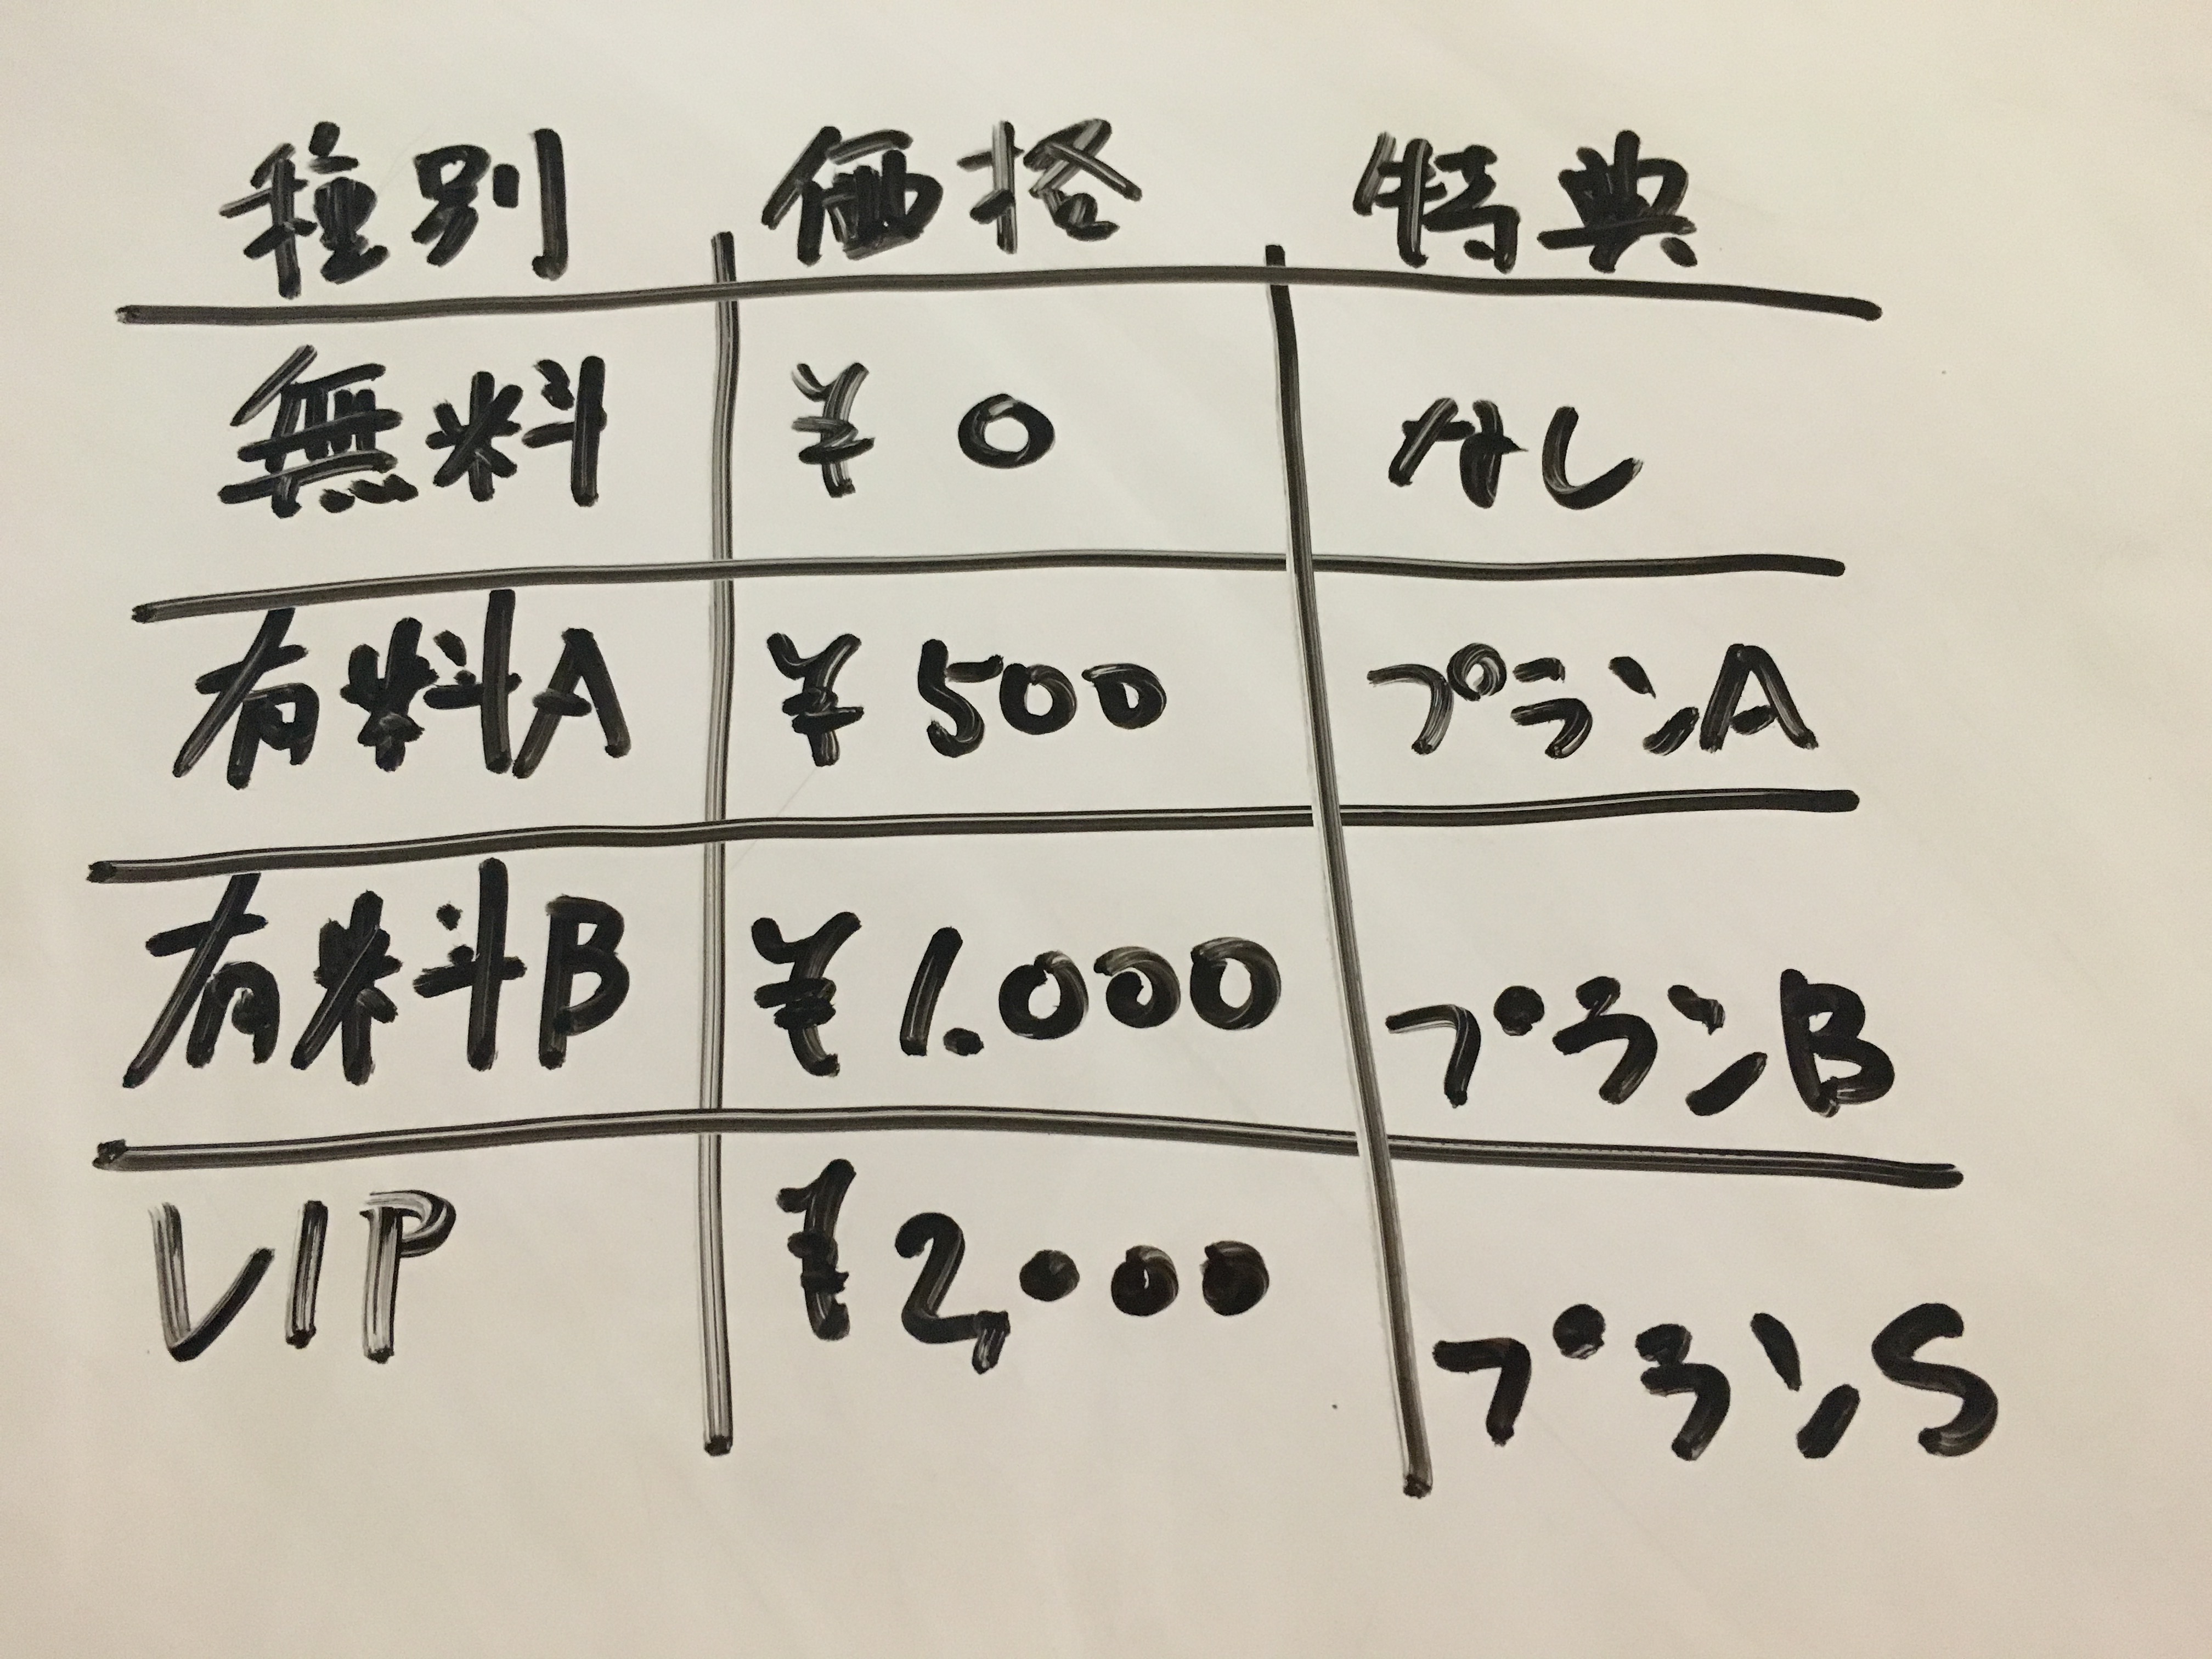 種別 価格 特典
無料 ¥ 0 なし
有料A ¥ 500 プランA
有料B ¥ 1.000 プランB
VIP ¥ 2,000 プランS